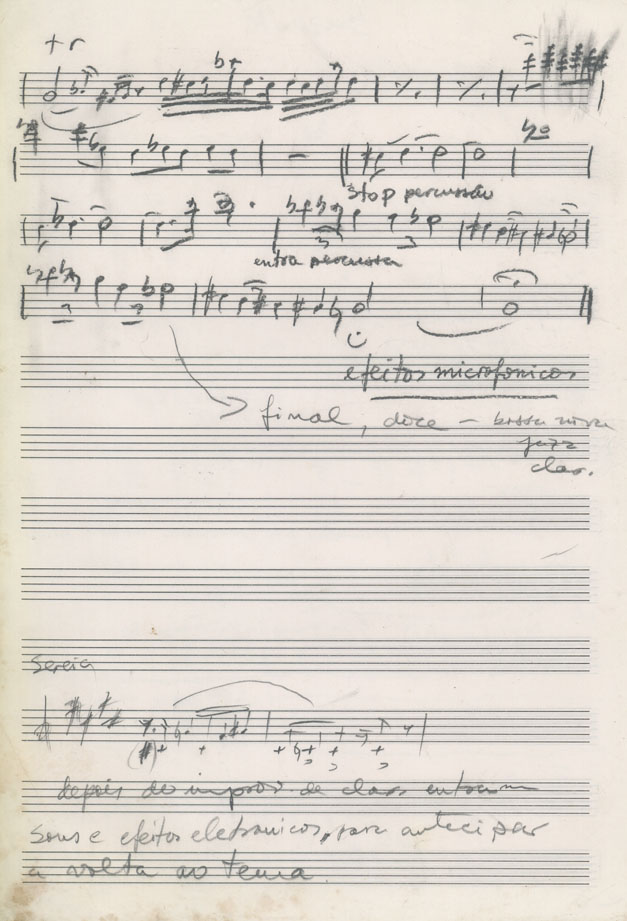 tr
Stop percussão
entra percussa
efeitos microfonicos
final, doce – bossa nova
jazz
clar.
Sereia
depois do improv. de clar. entram
sons e efeitos eletronicos, para antecipar
a volta ao tema